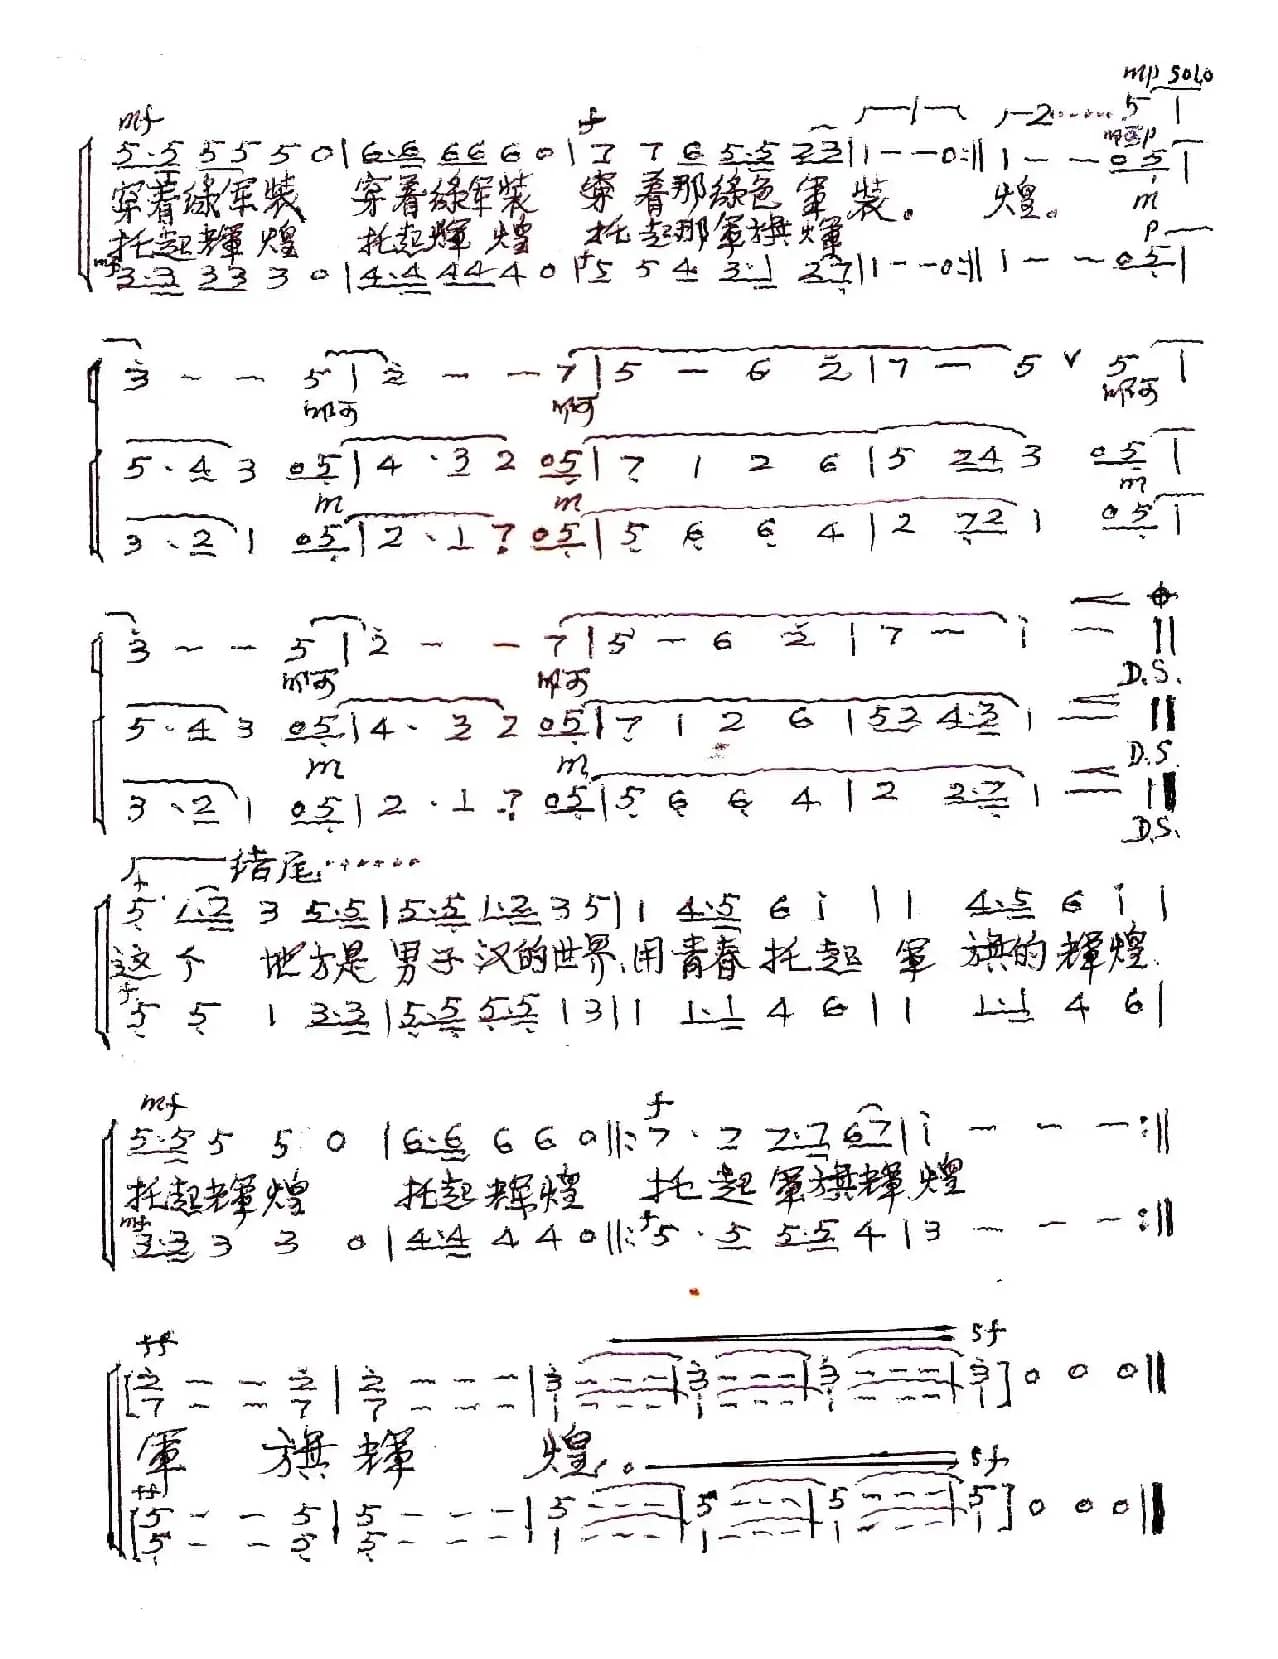 mp SOLO
mf f ┌─┐ ┌2…… 5 |
5·5 55 5 0 | 6·6 66 6 0 | 7 7 6 5·5 23 | 1 - - 0 :|| 1 - - 05 |
穿着绿军装 穿着绿军装 穿着那绿色軍裝。 煌。 m
托起輝煌 托起輝煌 托起那軍旗輝 p
mf f
3·3 33 3 0 | 4·4 44 4 0 | 5 5 4 3·1 27 | 1 - - 0 :|| 1 - - 05 |
3 - - 5 | 2 - - 7 | 5 - 6 2 | 7 - 5 v 5 |
啊 啊 啊
5·4 3 05 | 4·3 2 05 | 7 1 2 6 | 5 24 3 05 |
m m m
3·2 1 05 | 2·1 7 05 | 5 6 6 4 | 2 72 1 05 |
3 - - 5 | 2 - - 7 | 5 - 6 2 | 7 - i - ||
啊 啊 D.S.
5·4 3 05 | 4·3 2 05 | 7 1 2 6 | 52 4·3 | - ||
m m D.S.
3·2 1 05 | 2·1 7 05 | 5 6 6 4 | 2 2·7 | - ||
D.S.
结尾……
f
5 1·2 3 5·5 | 5·5 1·2 3 5 | 1 4·5 6 i | 1 4·5 6 i |
这个 地方是男子汉的世界、用青春托起 軍 旗的輝煌.
f
5 5 1 3·3 | 5·5 5·5 1 3 | 1 1·1 4 6 | 1 1·1 4 6 |
mf f
5·5 5 5 0 | 6·6 6 6 0 ||: 7·7 7·7 67 | i - - - :||
托起輝煌 托起辉煌 托起軍旗輝煌
mf f
3·3 3 3 0 | 4·4 4 4 0 ||: 5·5 5·5 4 | 3 - - - :||
ff sf
2 - - 2 | 2 - - - | 3 - - - | 3 - - - | 3 - - - | 3 ] 0 0 0 ||
7 - - 7 | 7 - - - | 1 - - - | 1 - - - | 1 - - - | 1
軍 旗輝 煌。
ff sf
5 - - 5 | 5 - - - | 5 - - - | 5 - - - | 5 - - - | 5 ] 0 0 0 ||
5 - - 5 | 5 - - - | 1 - - - | 1 - - - | 1 - - - | 1